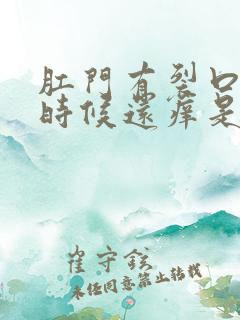 肛門有裂口
時候還癢是
崔守鉉
未經同意禁止轉載